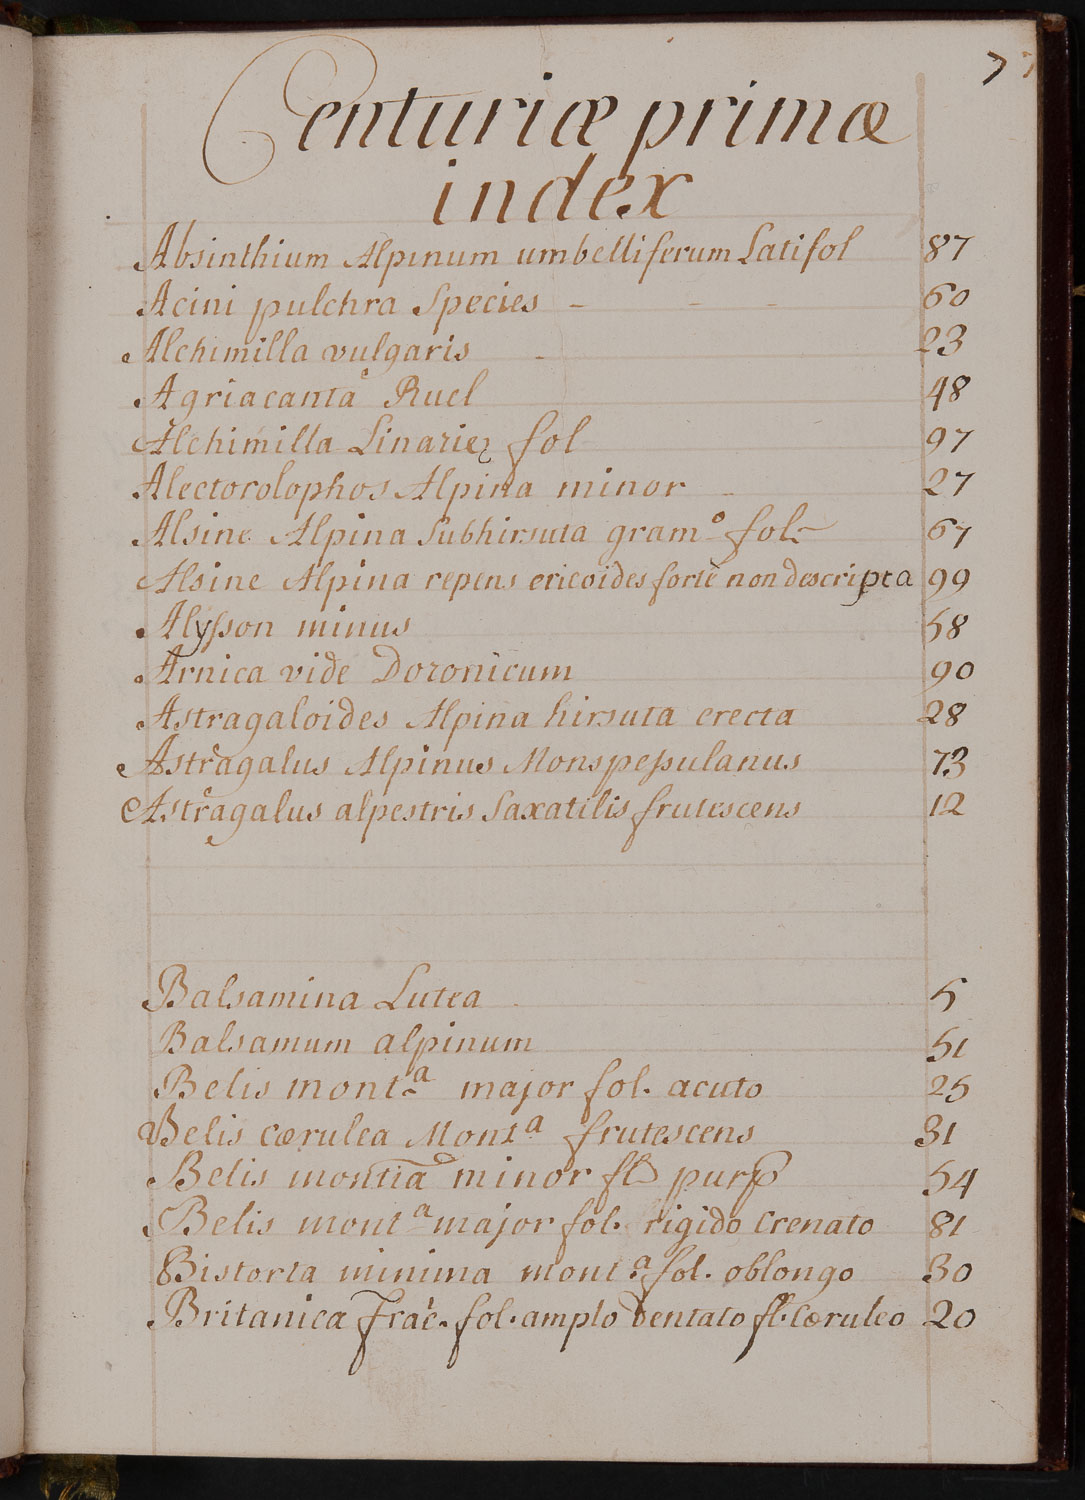 7
Centuriæ primæ
index
Absinthium Alpinum umbelliferum Latifol 87
Acini pulchra Species - - - 60
Alchimilla vulgaris - 23
Agriacanta Ruel 48
Alchimilla Linarię fol 97
Alectorolophos Alpina minor 27
Alsine Alpina subhirsuta gramº fol. 67
Alsine Alpina repens ericoides forte non descripta 99
Alyſson minus 58
Arnica vide Doronicum 90
Astragaloides Alpina hirsuta erecta 28
Astragalus Alpinus Monspeſsulanus 73
Astragalus alpestris Saxatilis frutescens 12
Balsamina Lutea 5
Balsamum alpinum 51
Belis montª major fol. acuto 25
Belis cærulea Montª frutescens 31
Belis montia minor fl purp 54
Belis montª major fol. rigido Crenato 81
Bistorta minima montª fol. oblongo 30
Britanica frac. fol. amplo dentato fl. Cæruleo 20